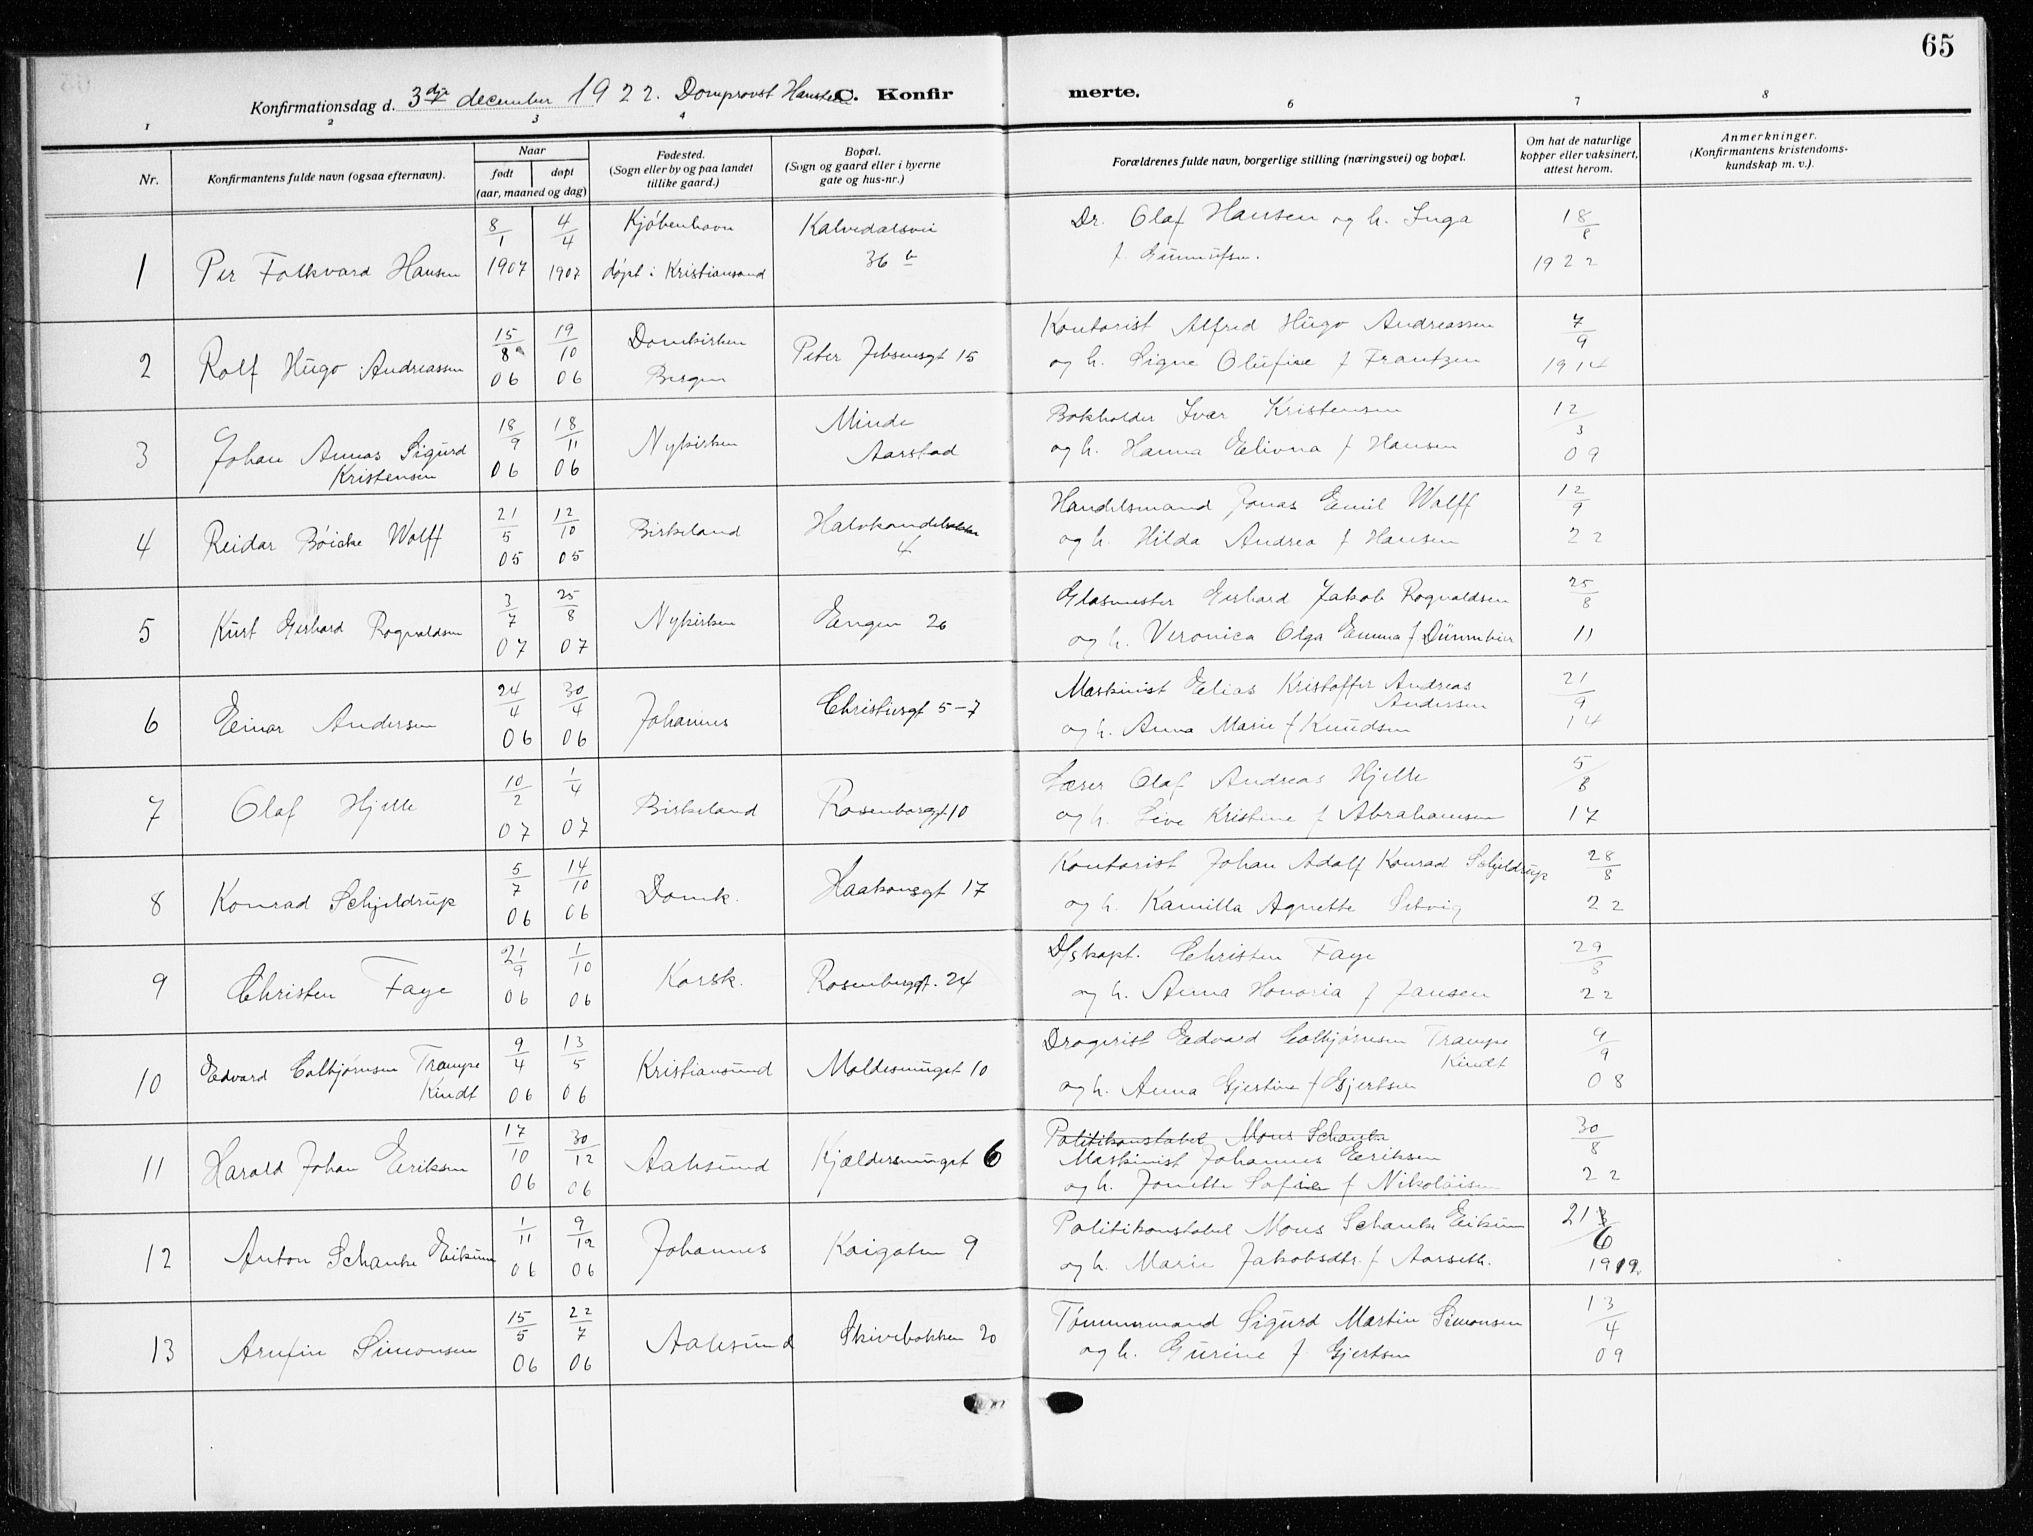 65
Konfirmationsdag d. 3dje december 1922. Domprovst Hansteen C. Konfirmerte.
1 2 3 4 6 7 8
Nr.
Konfirmantens fulde navn (ogsaa efternavn).
Naar
født døpt
(aar, maaned og dag)
Fødested.
(Sogn eller by og paa landet
tillike gaard.)
Bopæl.
(Sogn og gaard eller i byerne
gate og hus-nr.)
Forældrenes fulde navn, borgerlige stilling (næringsvei) og bopæl.
Om hat de naturlige
kopper eller vaksinert,
attest herom.
Anmerkninger.
(Konfirmantens kristendoms-
kundskap m. v.).
1 Per Folkvard Hansen 8/1 1907 4/4 1907 Kjöbenhavn
døpt i Kristiansand
Kalvedalsvei
36 b
Dr. Olaf Hansen og h. Inga
f. Gunnufsen.
18/8 1922
2 Rolf Hugo Andreassen 15/8 06 19/10 06 Domkirken
Bergen
Peter Jebsensgt 15
Kontorist Alfred Hugo Andreassen
og h. Signe Olufine f Frantzen
7/9 1914
3 Johan Annas Sigurd
Kristensen
18/9 06 18/11 06 Nykirken
Minde
Aarstad
Bokholder Ivar Kristensen
og h. Hanna Elivna f Hansen
12/3 09
4 Reidar Böicke Wolff 21/5 05 12/10 05 Birkeland
Halvkandebakken
4
Handelsmand Jonas Emil Wolff
og h. Hilda Andrea f Hansen
12/9 22
5 Kurt Gerhard Rognaldsen 3/7 07 25/8 07 Nykirken Engen 26
Glasmester Gerhard Jakob Rognaldsen
og h. Veronica Olga Emma f Dünnbier
25/8 11
6 Einar Andersen 24/4 06 30/4 06 Johannes Christiesgt 5-7
Maskinist Elias Kristoffer Andreas
Andersen
og h. Anna Marie f Knudsen
21/9 14
7 Olaf Hjelle 10/2 07 1/4 07 Birkeland Rosenborggt 10
Lærer Olaf Andreas Hjelle
og h. Live Kristine f Abrahamsen
5/8 17
8 Konrad Schjeldrup 5/7 06 14/10 06 Domk. Haakonsgt 17
Kontorist Johan Adolf Konrad Schjeldrup
og h. Kamilla Agnette Selvig
28/8 22
9 Christen Faye 21/9 06 1/10 06 Korsk. Rosenberggt. 24
D/Skapt. Christen Faye
og h. Anna Honoria f Jansen
29/8 22
10 Edvard Colbjørnsen Trampe
Kindt
9/4 06 13/5 06 Kristiansund Moldesmuget 10
Drogerist Edvard Colbjørnsen Trampe
Kindt
og h. Anna Gjertine f Gjertsen
9/9 08
11 Harald Johan Eriksen 17/10 06 30/12 06 Aalesund Kjældersmuget 6
Politikonstabel Mons Schanke
Maskinist Johannes Eriksen
og h. Jonette Sofie f Nikolaisen
30/8 22
12 Anton Schanke Eikum 1/11 06 9/12 06 Johannes Kaigaten 9
Politikonstabel Mons Schanke Eikum
og h. Marie Jakobsdtr. f Aarseth.
21/6 1919.
13 Arnfin Simonsen 15/5 06 22/7 06 Aalesund Skivebakken 20
Tømmermand Sigurd Martin Simonsen
og h. Gurine f. Gjertsen
13/4 09